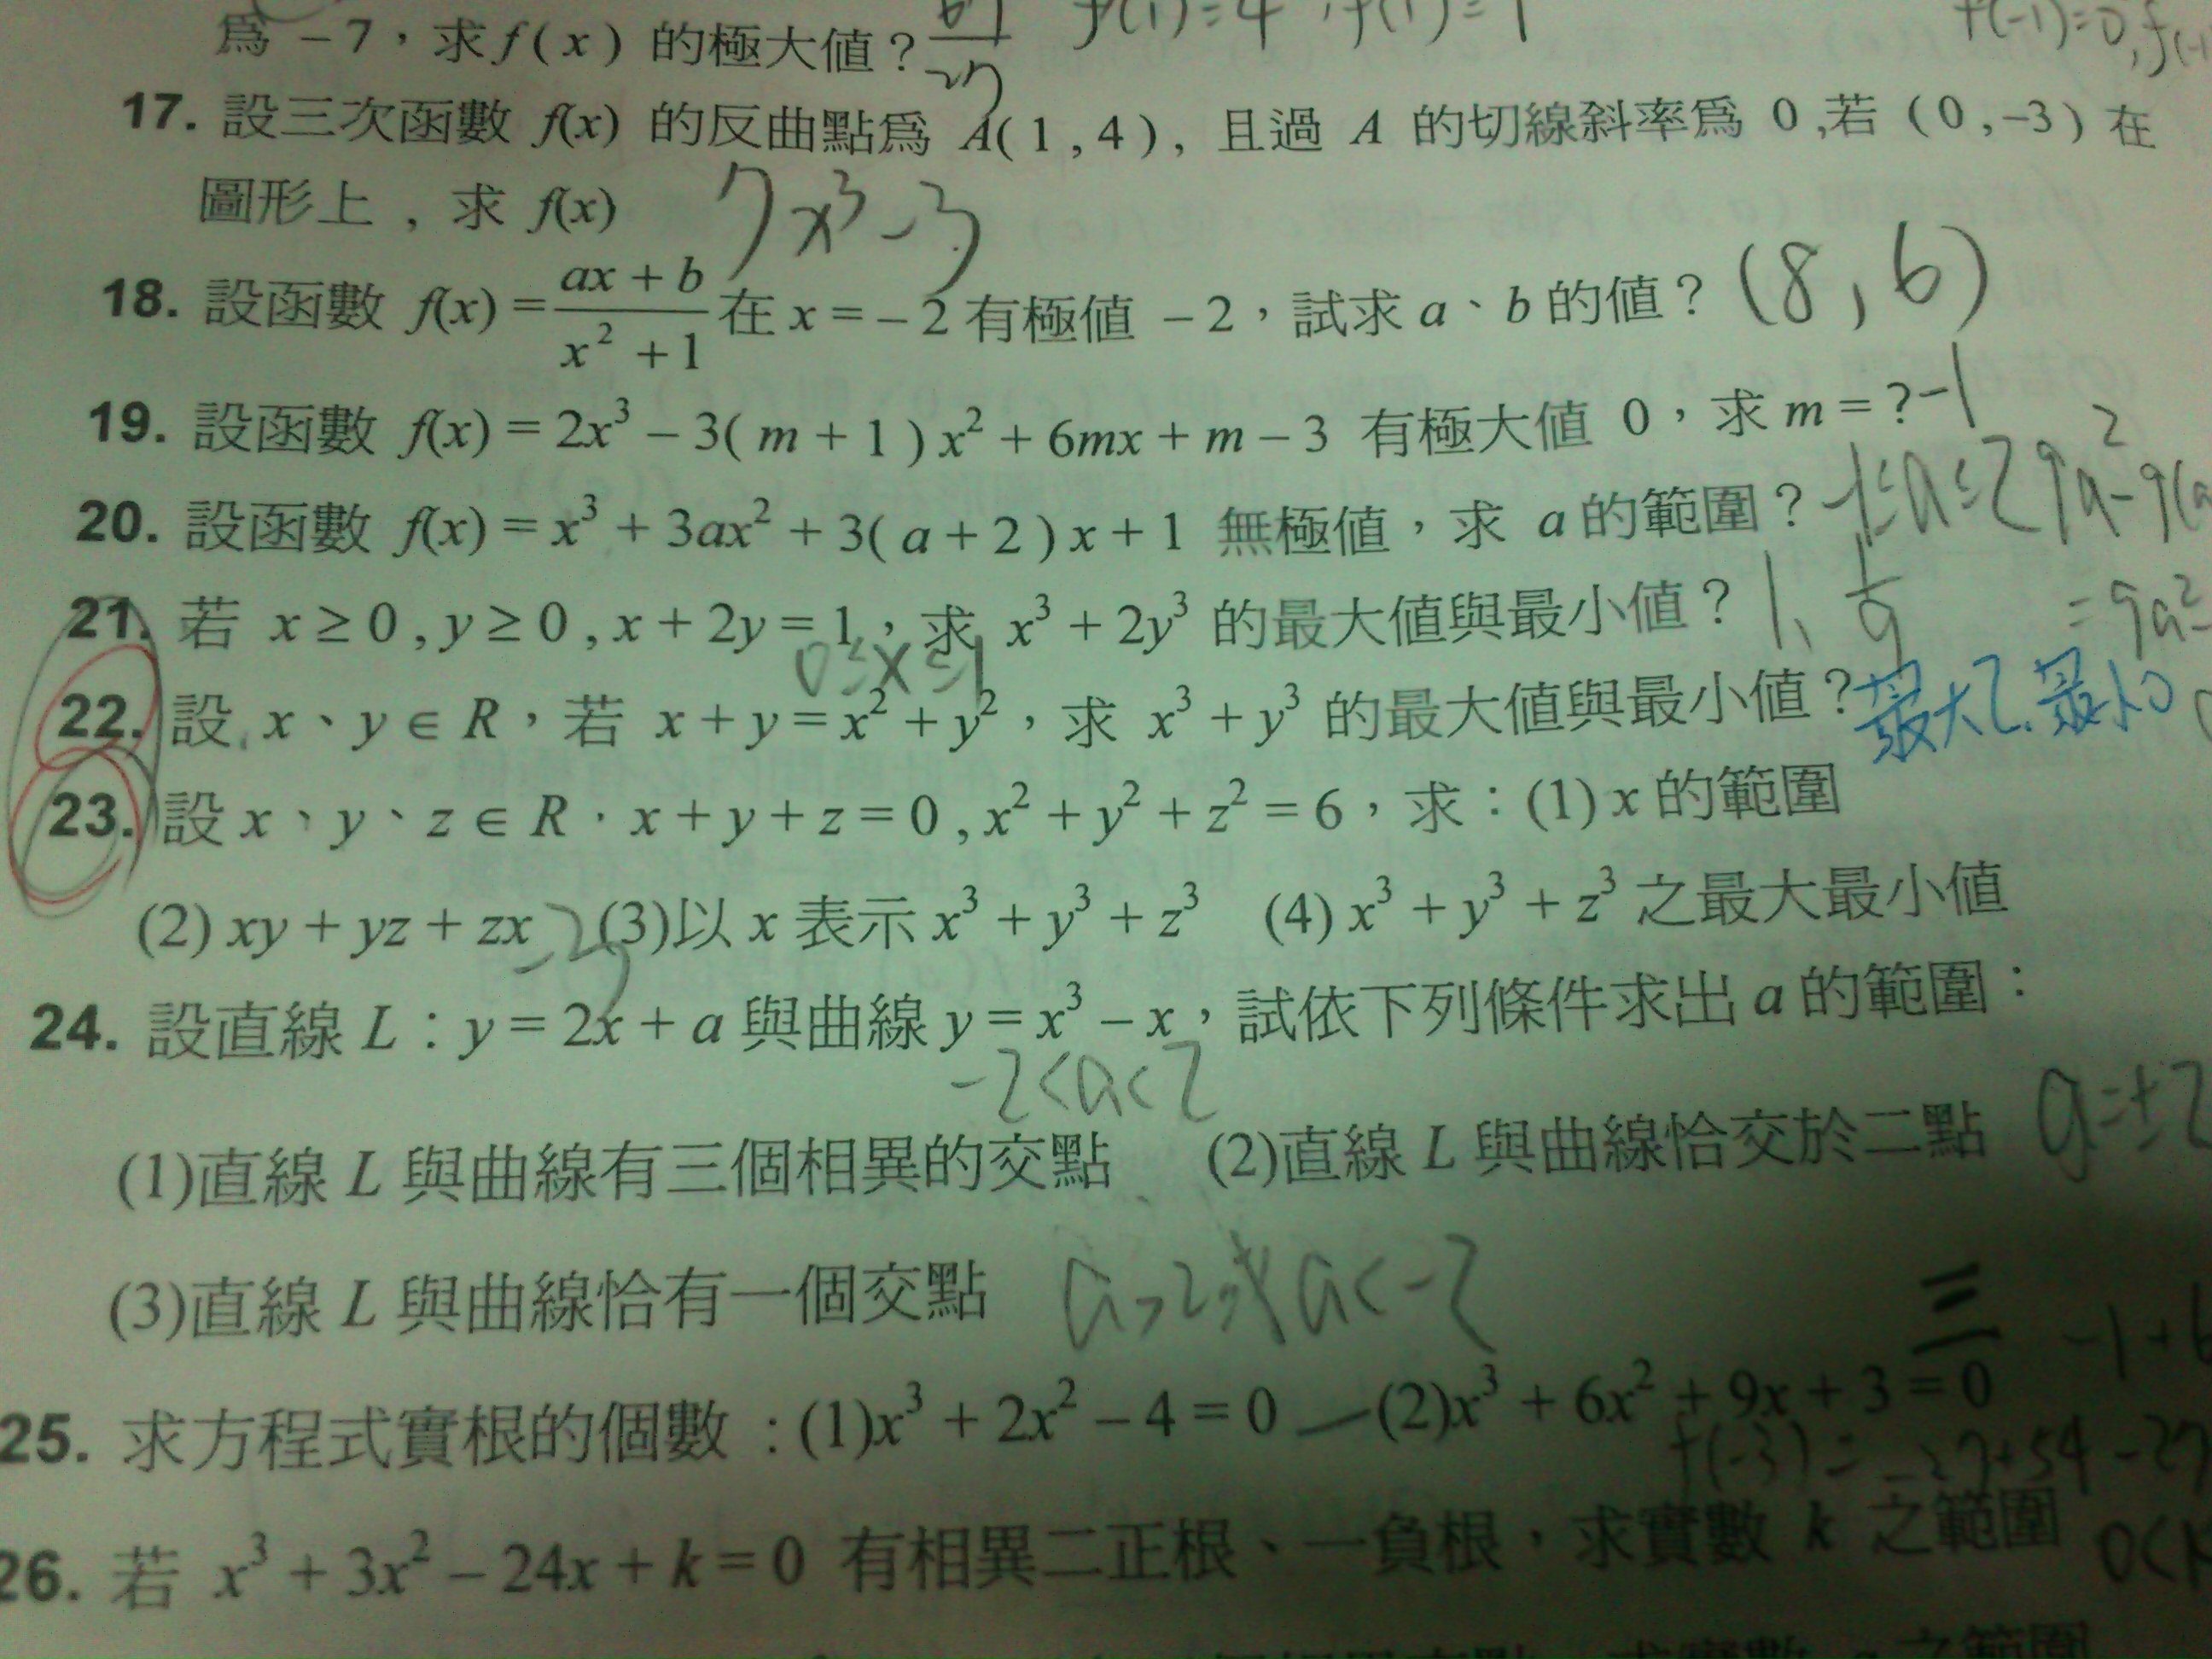 為 −7，求 f ( x ) 的極大值？ f(1)=4 f(-1)=0
17. 設三次函數 f(x) 的反曲點為 A( 1 , 4 ) , 且過 A 的切線斜率為 0 ,若 ( 0 , −3 ) 在
圖形上 , 求 f(x) 7x³−3
18. 設函數 f(x) = (ax + b)/(x² + 1) 在 x = − 2 有極值 − 2，試求 a、b 的值？ (8,6)
19. 設函數 f(x) = 2x³ − 3( m + 1 ) x² + 6mx + m − 3 有極大值 0，求 m = ? -1
20. 設函數 f(x) = x³ + 3ax² + 3( a + 2 ) x + 1 無極值，求 a 的範圍？ -1≤a≤2
21. 若 x ≥ 0 , y ≥ 0 , x + 2y = 1，求 x³ + 2y³ 的最大值與最小值？ 1、1/9
0≤x≤1
22. 設 x、y ∈ R，若 x + y = x² + y²，求 x³ + y³ 的最大值與最小值？ 最大2.最小0
23. 設 x、y、z ∈ R．x + y + z = 0 , x² + y² + z² = 6，求：(1) x 的範圍
(2) xy + yz + zx (3)以 x 表示 x³ + y³ + z³ (4) x³ + y³ + z³ 之最大最小值
24. 設直線 L：y = 2x + a 與曲線 y = x³ − x，試依下列條件求出 a 的範圍：
-2<a<2
(1)直線 L 與曲線有三個相異的交點 (2)直線 L 與曲線恰交於二點 a=±2
(3)直線 L 與曲線恰有一個交點 a>2或a<-2
三
25. 求方程式實根的個數：(1)x³ + 2x² − 4 = 0 一 (2)x³ + 6x² + 9x + 3 = 0
f(-3)= -27+54-27
26. 若 x³ + 3x² − 24x + k = 0 有相異二正根、一負根，求實數 k 之範圍